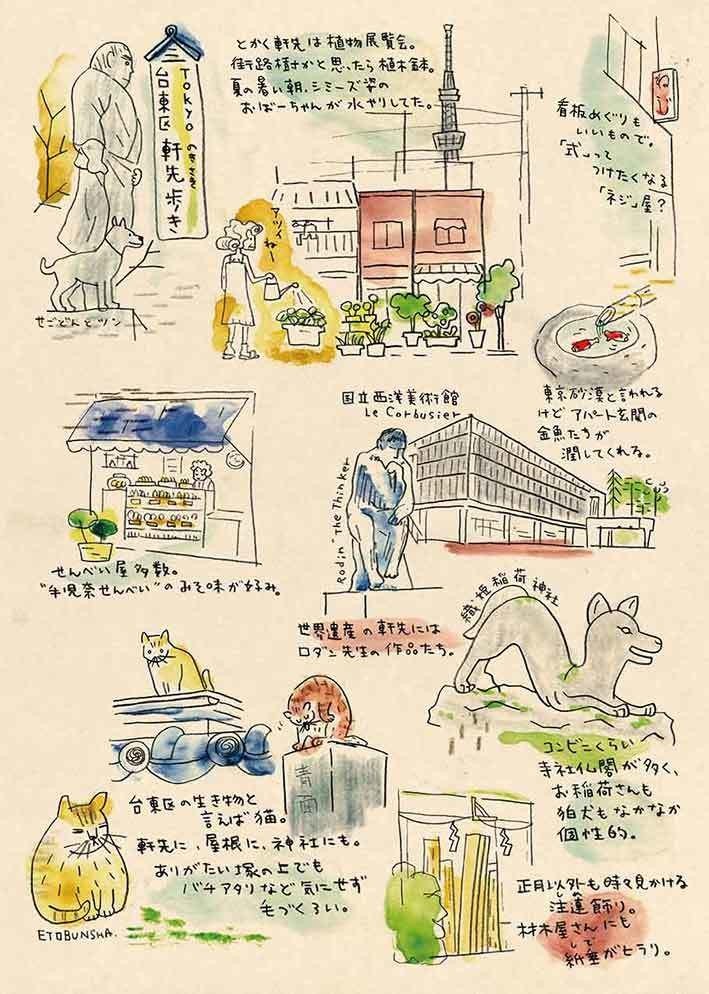 TOKYO
台東区 軒先歩き
のきさき
せごどんとツン
とかく軒先は植物展覧会。
街路樹かと思ったら植木鉢。
夏の暑い朝、シミーズ姿の
おばーちゃんが水やりしてた。
アツイねー
ねじ
看板めぐりも
いいもので。
「式」って
つけたくなる
「ネジ」屋?
東京砂漠と言われる
けどアパート玄関の
金魚たちが
潤してくれる。
せんべい屋多数。
"手児奈せんべい"のみそ味が好み。
国立西洋美術館
Le Corbusier
Rodin "The Thinker
世界遺産の軒先には
ロダン先生の作品たち。
織姫稲荷神社
コンビニくらい
寺社仏閣が多く、
お稲荷さんも
狛犬もなかなか
個性的。
青面
台東区の生き物と
言えば猫。
軒先に、屋根に、神社にも。
ありがたい塚の上でも
バチアタリなど気にせず
毛づくろい。
ETOBUNSHA.
正月以外も時々見かける
注連飾り。
材木屋さんにも
しで
紙垂がヒラリ。